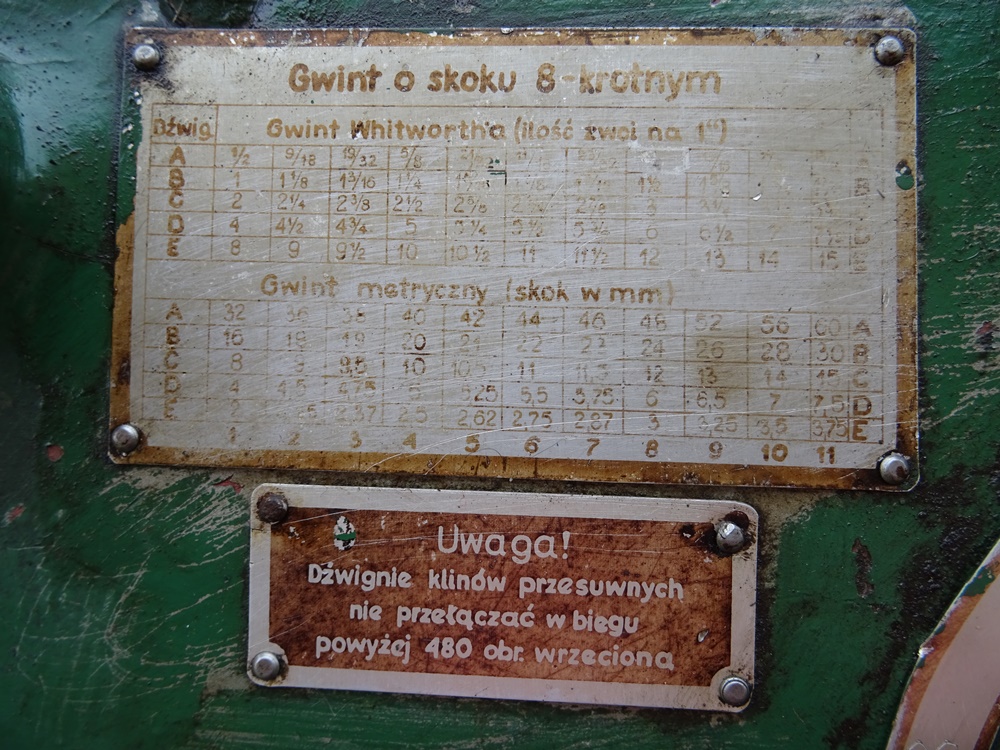 Gwint o skoku 8-krotnym
Dźwig. Gwint Whitworth'a (ilość zwoi na 1")
A 1/2 9/18 19/32 5/8
B 1 1 1/8 1 3/16 1 1/4 1 1/2 B
C 2 2 1/4 2 3/8 2 1/2 2 5/8 2 7/8 3
D 4 4 1/2 4 3/4 5 5 1/4 5 1/2 5 3/4 6 6 1/2 7
E 8 9 9 1/2 10 10 1/2 11 11 1/2 12 13 14 15 E
Gwint metryczny (skok w mm)
A 32 36 38 40 42 44 46 48 52 56 60 A
B 16 18 19 20 21 22 23 24 26 28 30 B
C 8 9 9,8 10 10,5 11 11,5 12 13 14 15 C
D 4 4,5 4,75 5 5,25 5,5 5,75 6 6,5 7 7,5 D
E 2 2,37 2,5 2,62 2,75 2,87 3 3,25 3,5 3,75 E
1 2 3 4 5 6 7 8 9 10 11
Uwaga!
Dźwignie klinów przesuwnych
nie przełączać w biegu
powyżej 480 obr. wrzeciona